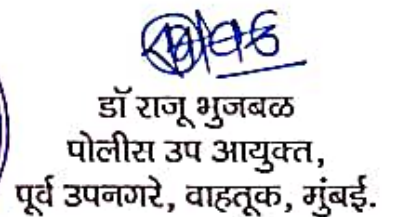 डॉ राजू भुजबळ
पोलीस उप आयुक्त,
पूर्व उपनगरे, वाहतूक, मुंबई.